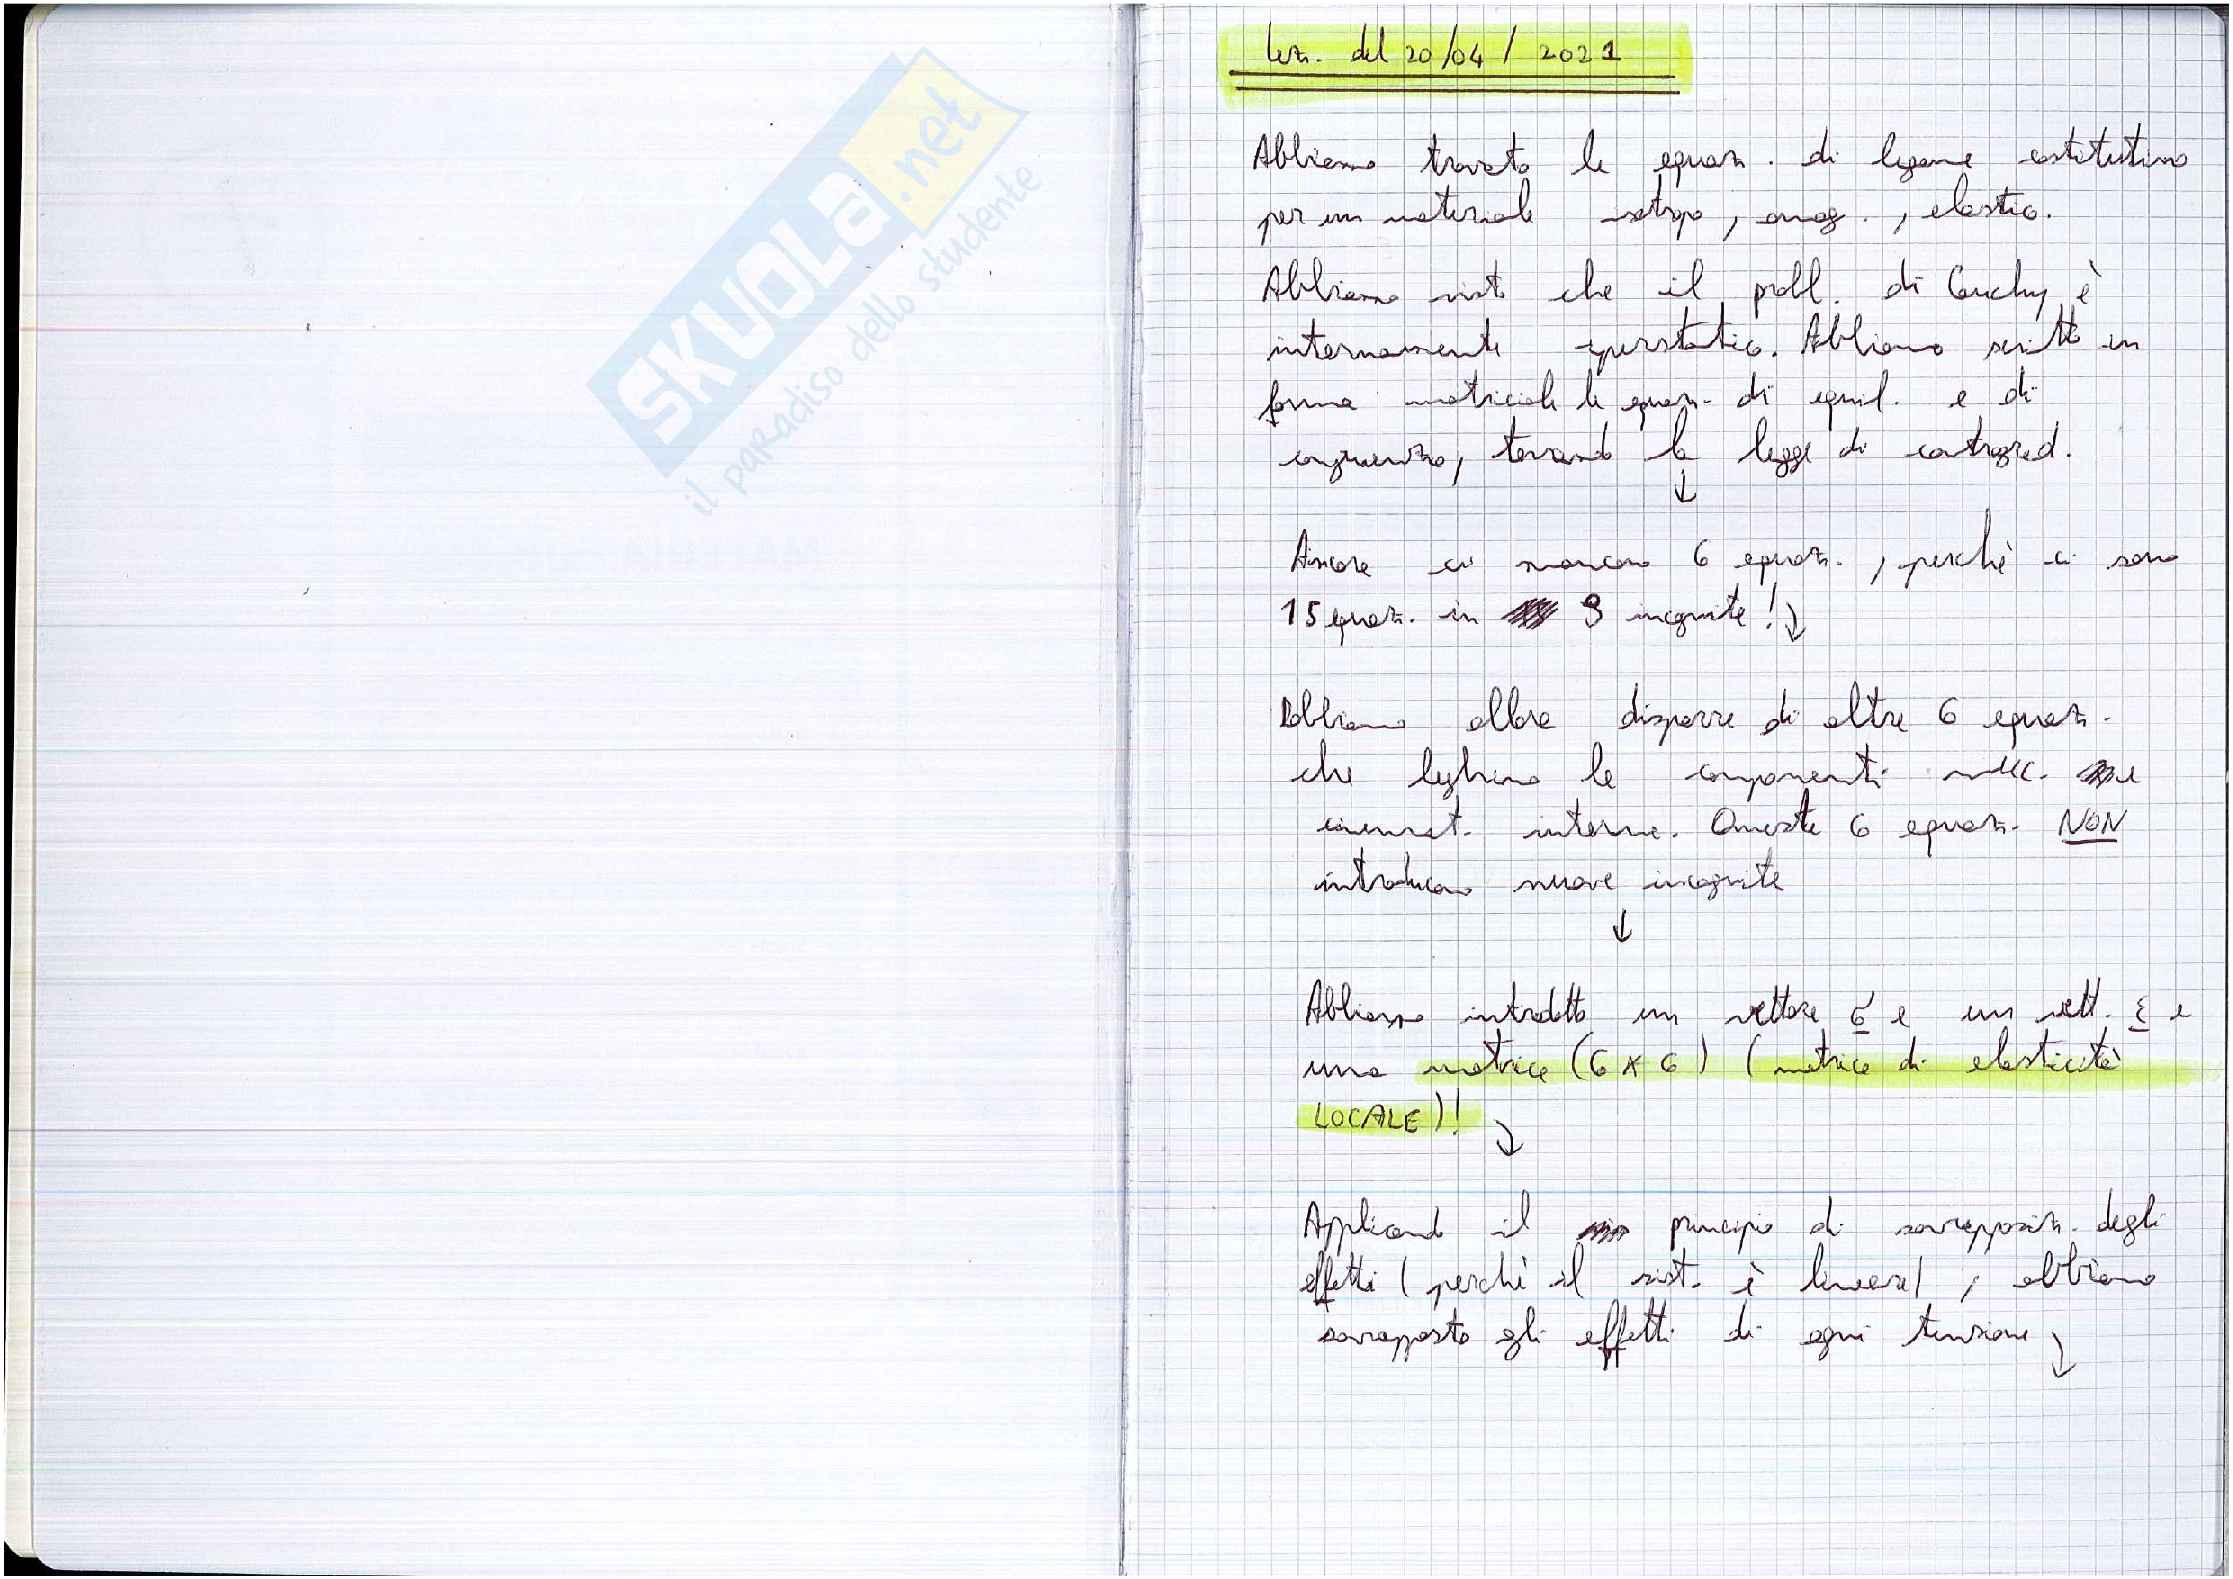 SKUOLA.net
il paradiso dello studente
Lez. del 20/04/2021
Abbiamo trovato le equaz. di legame costitutivo
per un materiale isotropo, omog., elastico.
Abbiamo visto che il probl. di Cauchy è
internamente iperstatico. Abbiamo scritto in
forma matriciale le equaz. di equil. e di
congruenza, trovando la legge di controgred.
↓
Ancora ci mancano 6 equaz., perchè ci sono
15 equaz. in 9 incognite! ↓
Dobbiamo allora disporre di altre 6 equaz.
che leghino le componenti mecc. e
cinemat. interne. Queste 6 equaz. NON
introducono nuove incognite
↓
Abbiamo introdotto un vettore σ e un vett. ε e
una matrice (6 x 6) (matrice di elasticità
LOCALE)! ↓
Applicando il principio di sovrapposiz. degli
effetti (perchè il sist. è lineare), abbiamo
sovrapposto gli effetti di ogni tensione ↓